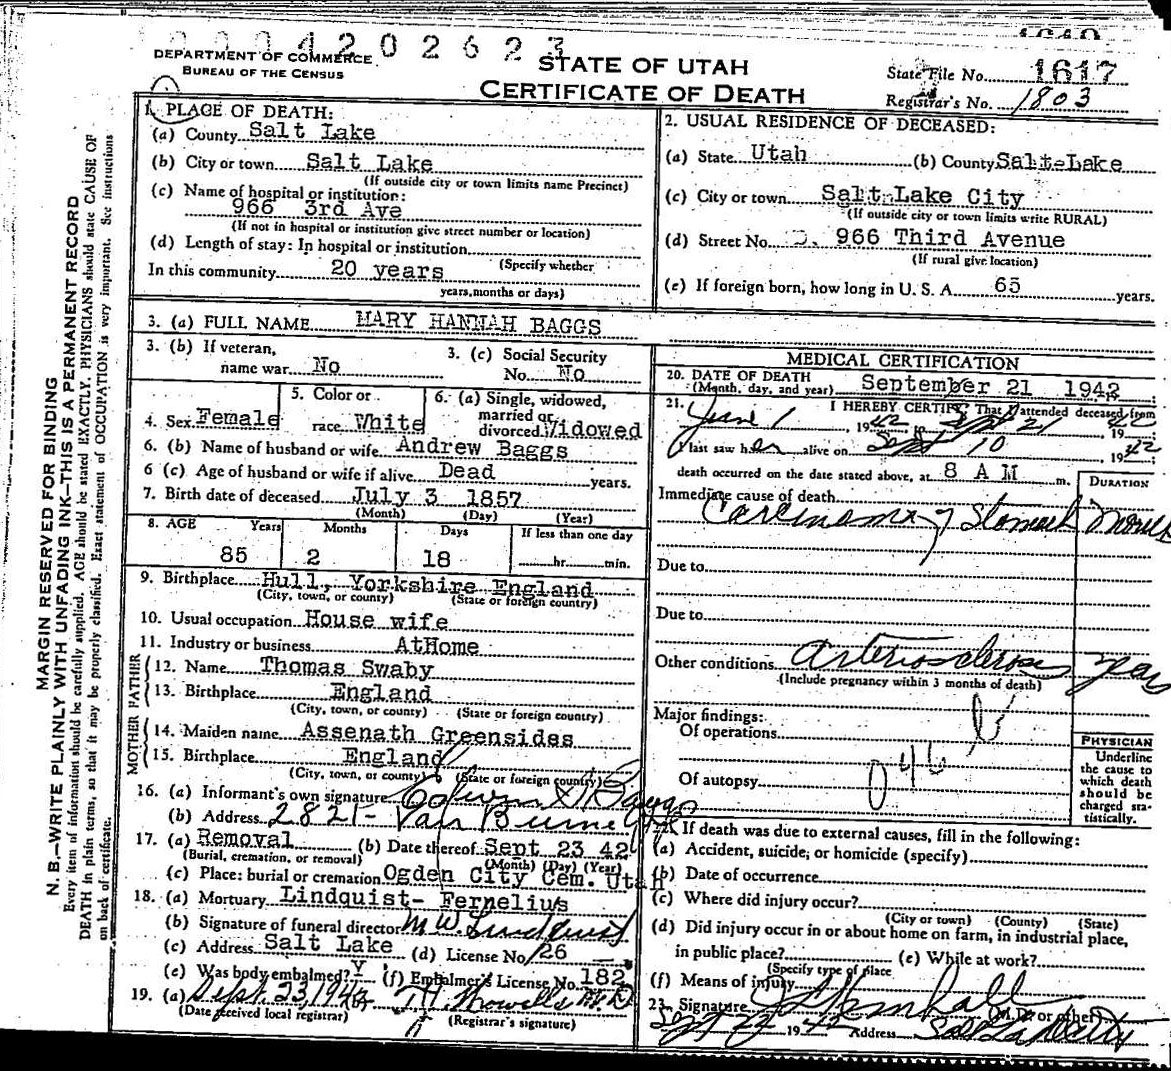 0004202623
DEPARTMENT OF COMMERCE
BUREAU OF THE CENSUS
STATE OF UTAH
CERTIFICATE OF DEATH
State File No. 1617
Registrar's No. 1803
MARGIN RESERVED FOR BINDING
N. B.—WRITE PLAINLY WITH UNFADING INK—THIS IS A PERMANENT RECORD
Every item of information should be carefully supplied. AGE should be stated EXACTLY. PHYSICIANS should state CAUSE OF
DEATH in plain terms, so that it may be properly classified. Exact statement of OCCUPATION is very important. See instructions
on back of certificate.
1. PLACE OF DEATH:
(a) County Salt Lake
(b) City or town Salt Lake
(If outside city or town limits name Precinct)
(c) Name of hospital or institution:
966 3rd Ave
(If not in hospital or institution give street number or location)
(d) Length of stay: In hospital or institution
(Specify whether
In this community 20 years
years, months or days)
2. USUAL RESIDENCE OF DECEASED:
(a) State Utah (b) County Salt Lake
(c) City or town Salt Lake City
(If outside city or town limits write RURAL)
(d) Street No. 966 Third Avenue
(If rural give location)
(e) If foreign born, how long in U. S. A. 65 years.
3. (a) FULL NAME MARY HANNAH BAGGS
3. (b) If veteran,
name war No
3. (c) Social Security
No. No
4. Sex Female
5. Color or
race White
6. (a) Single, widowed,
married or
divorced Widowed
6. (b) Name of husband or wife Andrew Baggs
6 (c) Age of husband or wife if alive Dead years.
7. Birth date of deceased July 3 1857
(Month) (Day) (Year)
8. AGE Years Months Days If less than one day
85 2 18 hr. min.
9. Birthplace Hull, Yorkshire England
(City, town, or county) (State or foreign country)
10. Usual occupation House wife
11. Industry or business AtHome
FATHER
12. Name Thomas Swaby
13. Birthplace England
(City, town, or county) (State or foreign country)
MOTHER
14. Maiden name Assenath Greensides
15. Birthplace England
(City, town, or county) (State or foreign country)
16. (a) Informant's own signature Baggs
(b) Address 2821 - Van Buren
17. (a) Removal (b) Date thereof Sept 23 42
(Burial, cremation, or removal) (Month) (Day) (Year)
(c) Place: burial or cremation Ogden City Cem. Utah
18. (a) Mortuary Lindquist- Fernelius
(b) Signature of funeral director M. W. Lindquist
(c) Address Salt Lake (d) License No. 126
(e) Was body embalmed? Y (f) Embalmer's License No. 182
19. (a) Sept. 23, 1942 M.D.
(Date received local registrar) (Registrar's signature)
MEDICAL CERTIFICATION
20. DATE OF DEATH
(Month, day, and year) September 21 1942
21. I HEREBY CERTIFY, That I attended deceased from
June 1, 1942 to Sept 21, 1942;
I last saw her alive on Sept 10, 1942;
death occurred on the date stated above, at 8 A M m.
DURATION
Immediate cause of death
Carcinoma of Stomach
Due to
Due to
Other conditions Arteriosclerosis years
(Include pregnancy within 3 months of death)
Major findings:
Of operations
046 b
Of autopsy
PHYSICIAN
Underline
the cause to
which death
should be
charged sta-
tistically.
22. If death was due to external causes, fill in the following:
(a) Accident, suicide, or homicide (specify)
(b) Date of occurrence
(c) Where did injury occur?
(City or town) (County) (State)
(d) Did injury occur in or about home on farm, in industrial place,
in public place? (e) While at work?
(Specify type of place
(f) Means of injury
23. Signature Kimball
(M.D. or other)
Sept 22 1942 Address Salt Lake City